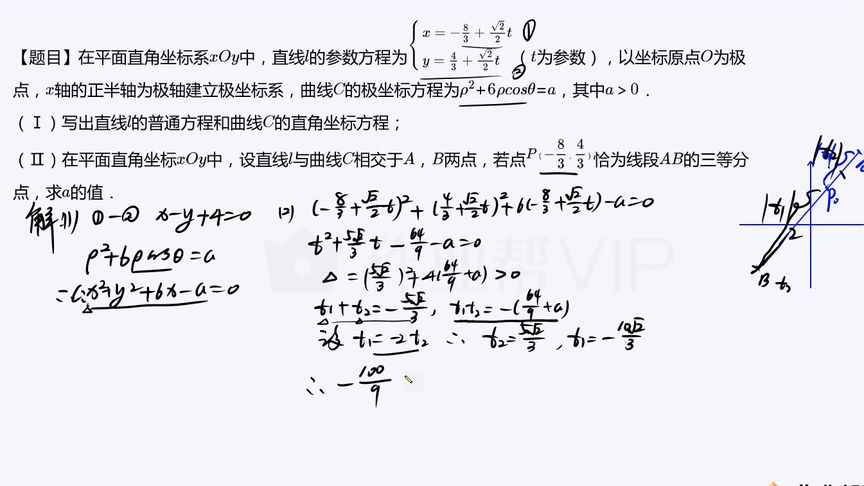 【题目】在平面直角坐标系xOy中，直线l的参数方程为{x=-8/3+√2/2t ① y=4/3+√2/2t ② （t为参数），以坐标原点O为极
点，x轴的正半轴为极轴建立极坐标系，曲线C的极坐标方程为ρ²+6ρcosθ=a，其中a＞0．
（Ⅰ）写出直线l的普通方程和曲线C的直角坐标方程；
（Ⅱ）在平面直角坐标xOy中，设直线l与曲线C相交于A，B两点，若点P(-8/3,4/3)恰为线段AB的三等分
点，求a的值．
解(1) ①-② x-y+4=0
ρ²+6ρcosθ=a
x²+y²+6x-a=0
(2) (-8/3+√2/2t)²+(4/3+√2/2t)²+6(-8/3+√2/2t)-a=0
t²+5√2/3t-64/9-a=0
△=(5√2/3)²+4(64/9+a)>0
t₁+t₂=-5√2/3, t₁t₂=-(64/9+a)
设 t₁=-2t₂ ∴ t₂=5√2/3, t₁=-10√2/3
∴ -100/9
|t₂|
P₀
|t₁|
2
B t₁
VIP